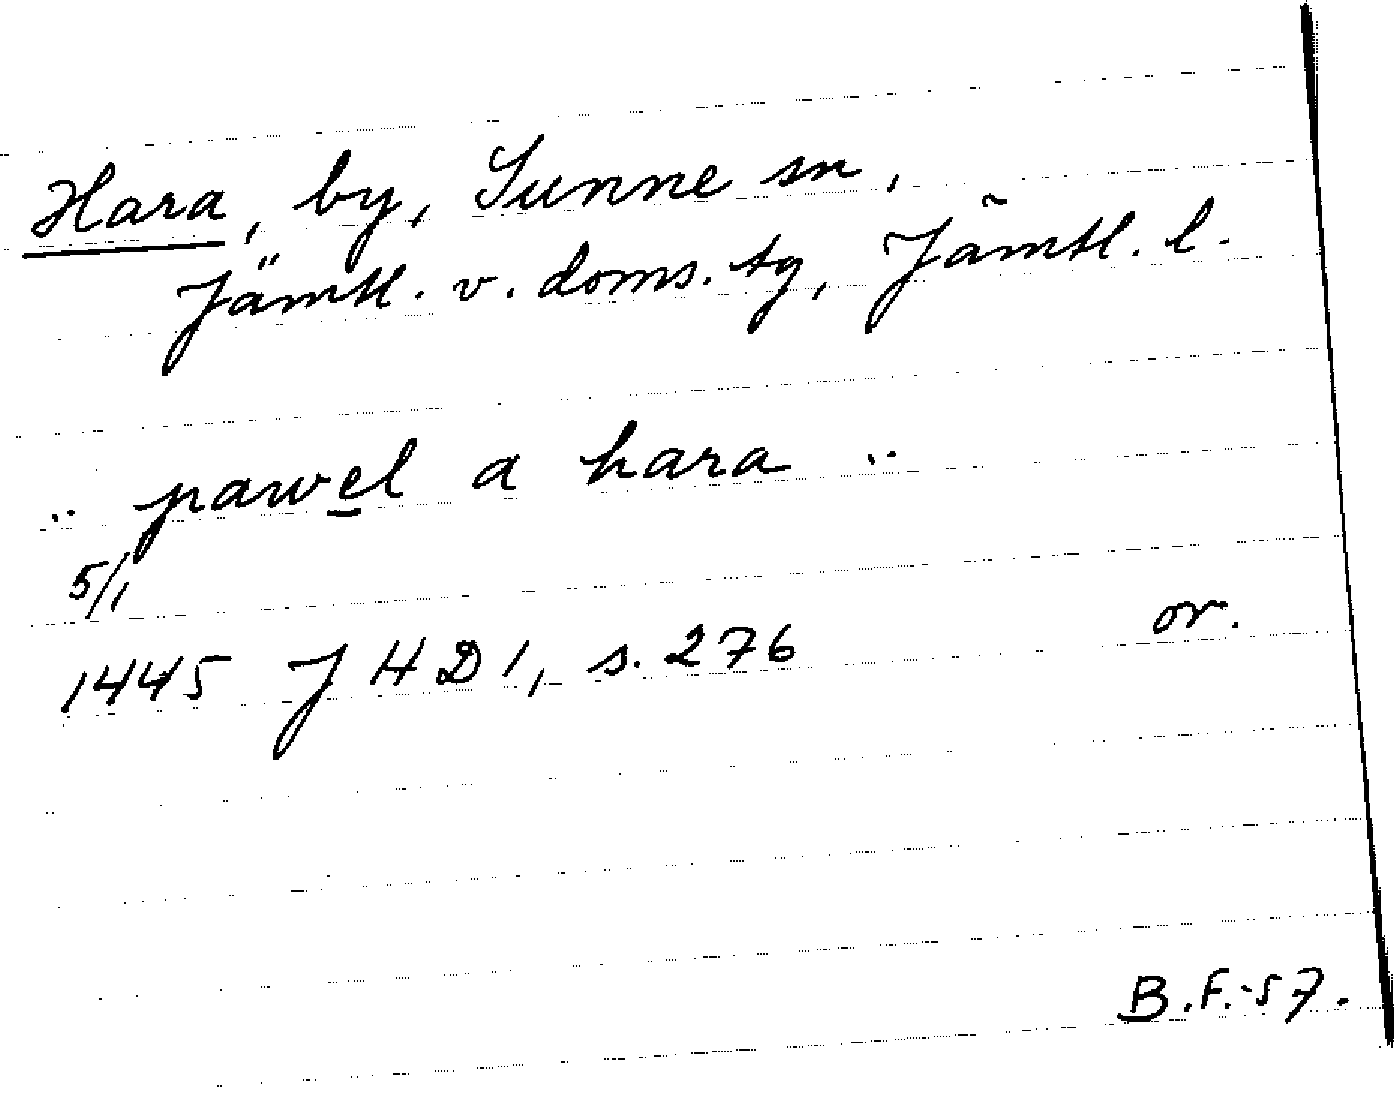 Hara, by, Sunne sn,
Jämtl. v. doms. tg, Jämtl. l.
.. pawel a hara ..
5/1
1445 J H D 1, s. 276 or.
B.F.-57.